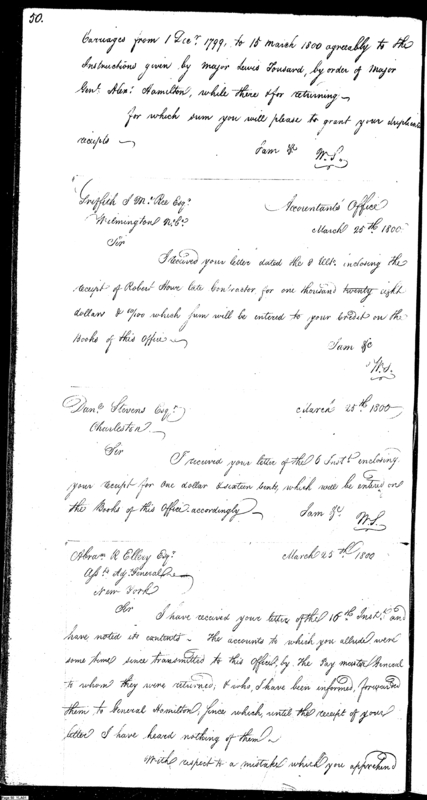 50.
Carriages from 1 Decr. 1799, to 15 march 1800 agreeably to the
Instructions given by major Lewis Tousard, by order of Major
Genl. Alexr. Hamilton, while there & for returning —
for which sum you will please to grant your duplicate
receipts —
I am &c W.S.
Griffith J McRee Esqr.
Accountants Office
Wilmington N.C.
March 25th 1800
Sir
I received your letter dated the 8 Ulto. inclosing the
receipt of Robert Howe late Contractor for one thousand twenty eight
dollars & /100 which sum will be entered to your Credit on the
Books of this Office —
I am &c
W.S.
Danl. Stevens Esqr.
March 25th 1800
Charleston
Sir
I received your letter of the 6 Inst. enclosing
your receipt for one dollar & sixteen Cents, which will be entered on
the Books of this Office accordingly —
I am &c W.S.
Abram R Ellery Esqr.
March 25th 1800
Asst. Adj. General
New York
Sir
I have received your letter of the 16th Inst. and
have noted its contents - the accounts to which you allude were
some time since transmitted to this office, by the Pay master General
to whom they were returned, & who, I have been informed, forwarded
them to General Hamilton, since which, until the receipt of your
letter I have heard nothing of them —
With respect to a mistake which you apprehend